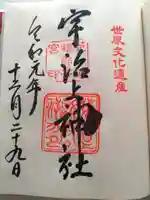 世界文化遺産
宇治上神社
令和元年
十二月二十九日